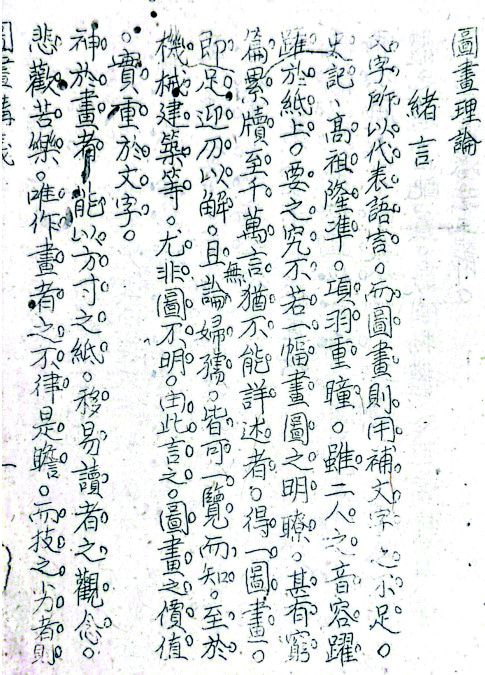 圖畫理論
緒言
文字所以代表語言。而圖畫則用補文字之不足。
史記、高祖隆準。項羽重瞳。雖二人之音容躍
躍於紙上。要之究不若一幅畫圖之明瞭。甚有窮
篇累牘至千萬言猶不能詳述者。得一圖畫。
即足迎刃以解。且無論婦孺。皆可一覽而知。至於
機械建築等。尤非圖不明。由此言之。圖畫之價值
。實重於文字。
神於畫者能以方寸之紙。移易讀者之觀念。
悲歡苦樂。唯作畫者之不律是瞻。而技之劣者則
圖畫講義
一